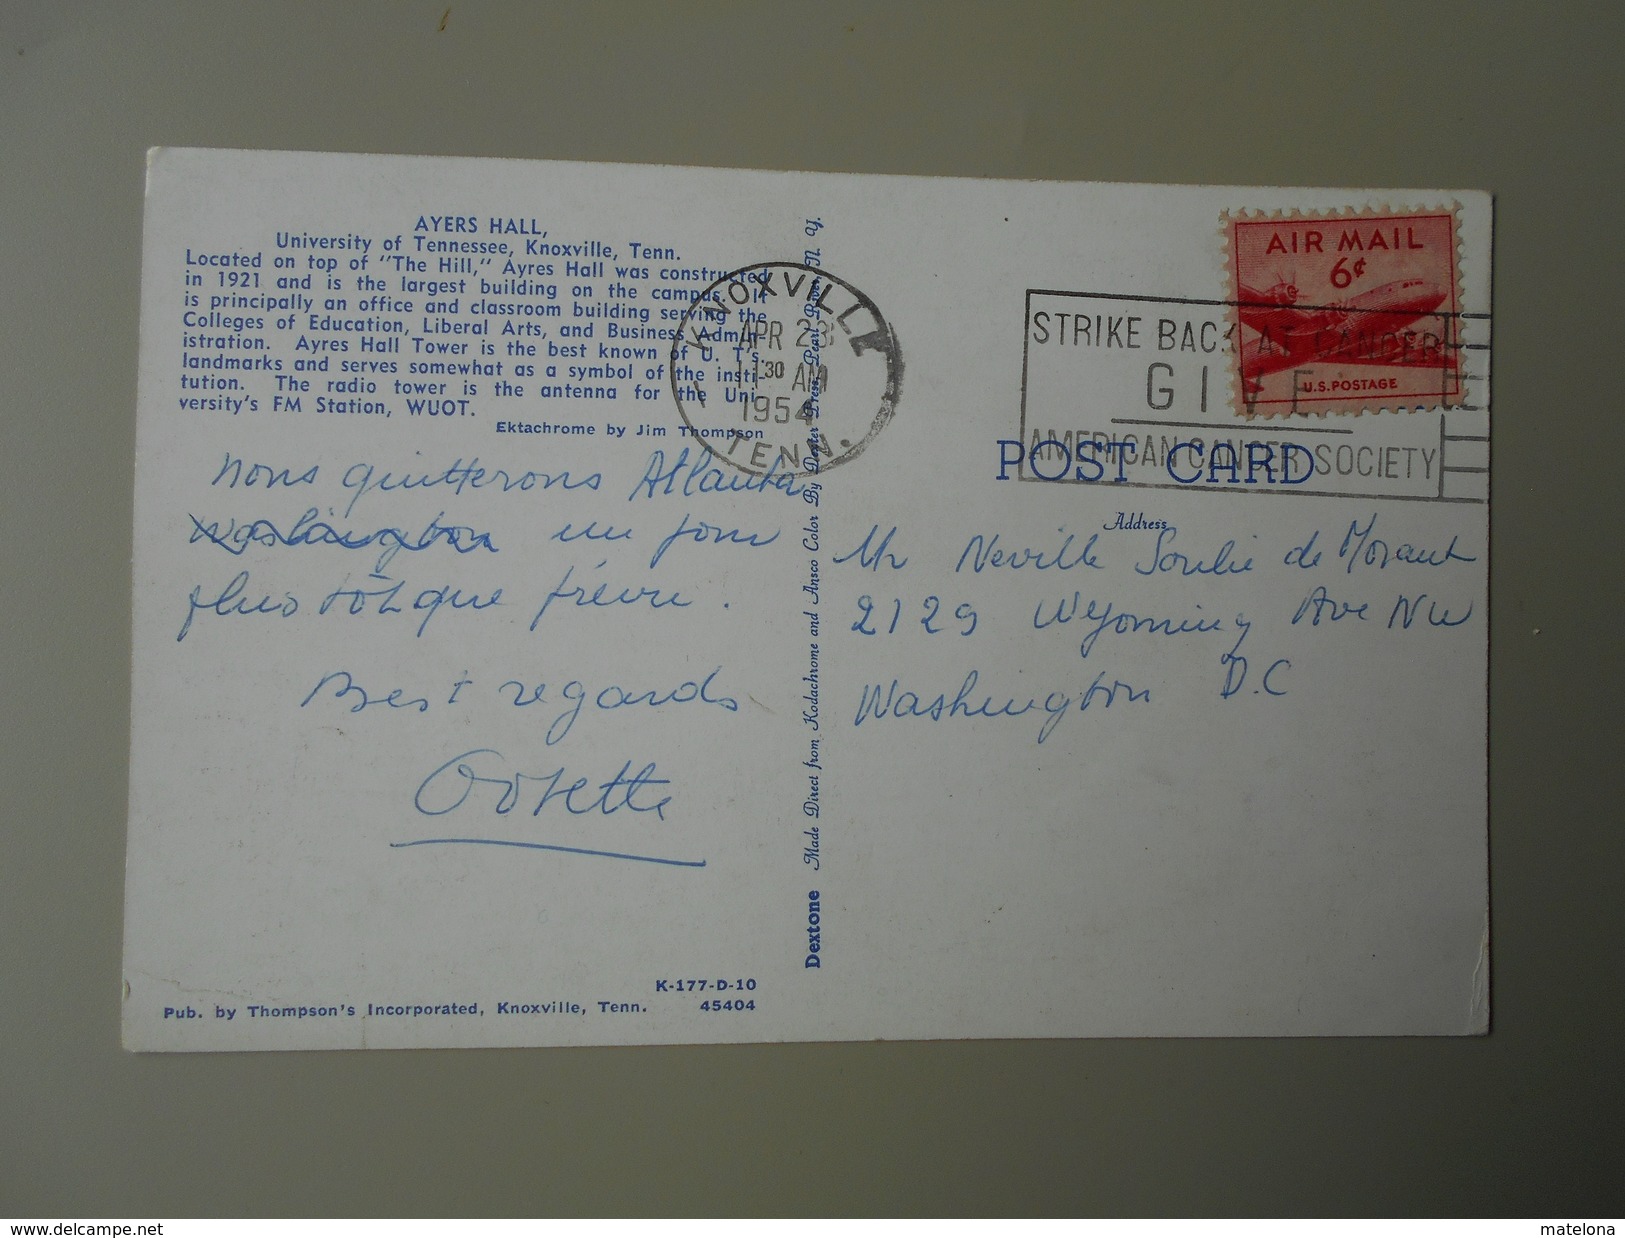 AYERS HALL,
University of Tennessee, Knoxville, Tenn.
Located on top of "The Hill," Ayres Hall was constructed
in 1921 and is the largest building on the campus. It
is principally an office and classroom building serving the
Colleges of Education, Liberal Arts, and Business Admin-
istration. Ayres Hall Tower is the best known of U. T's.
landmarks and serves somewhat as a symbol of the insti-
tution. The radio tower is the antenna for the Uni-
versity's FM Station, WUOT.
Ektachrome by Jim Thompson
Nous quitterons Atlanta
Washington un jour
plus tôt que prévu.
Best regards
K-177-D-10
Pub. by Thompson's Incorporated, Knoxville, Tenn. 45404
Dextone Made Direct from Kodachrome and Ansco Color By Dexter Press, Pearl River, N. Y.
KNOXVILLE
APR 23
11 30 AM
1954
TENN.
AIR MAIL
6¢
U.S. POSTAGE
STRIKE BACK AT CANCER
GIVE
AMERICAN CANCER SOCIETY
POST CARD
Address
Mr Neville Soulié de Morant
2129 Wyoming Ave NW
Washington D.C
http://www.delcampe.net
matelona